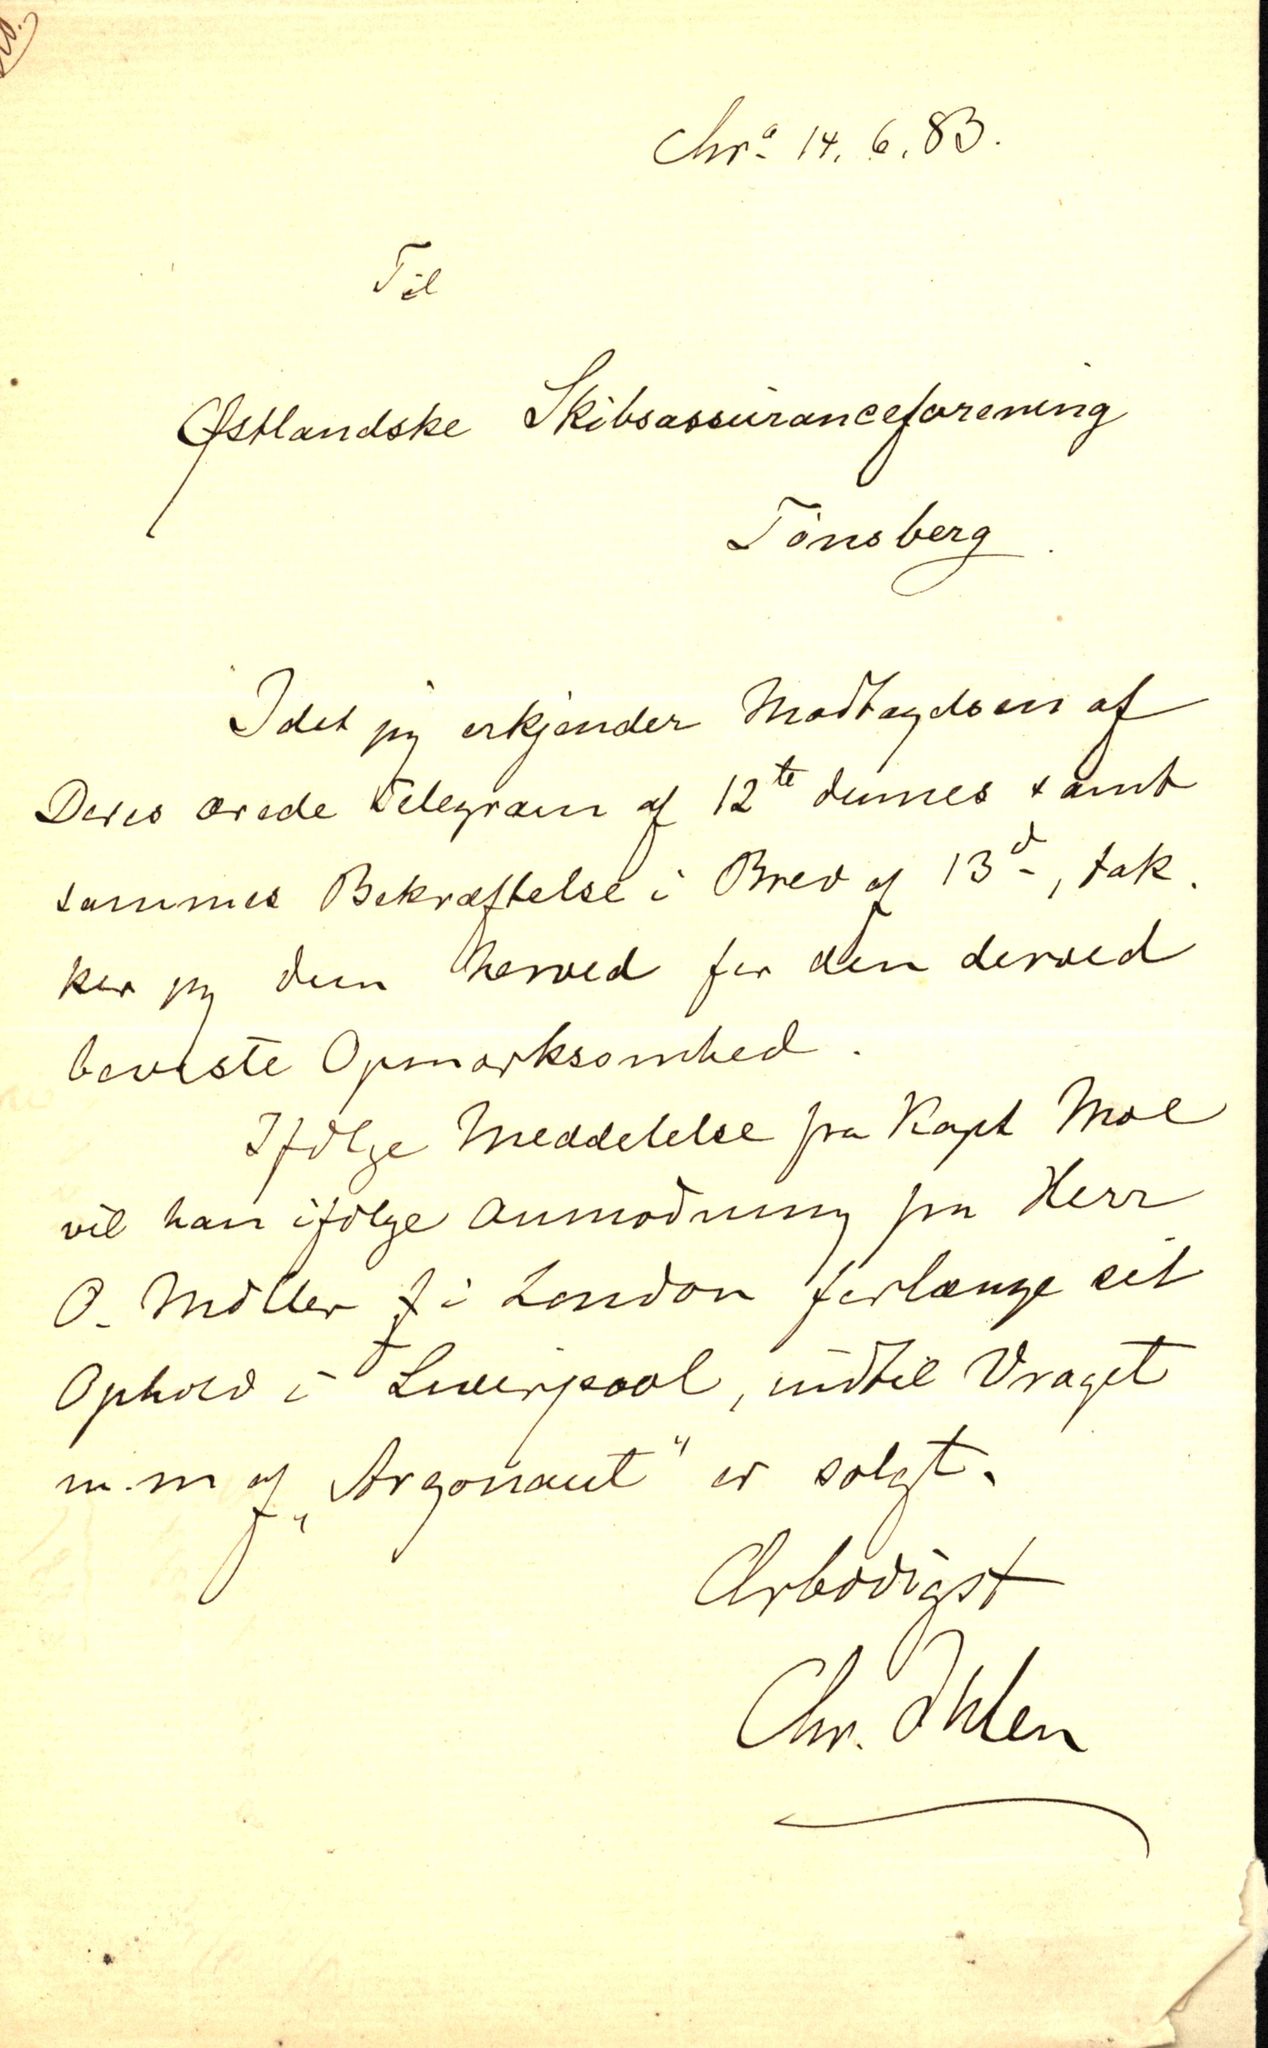 Chrª 14. 6. 83.
Til
Østlandske Skibsassuranceforening
Tönsberg.
Idet jeg erkjender Modtagelsen af
Deres ærede Telegram af 12te dennes samt
sammes Bekræftelse i Brev af 13d, tak-
ker jeg dem herved for den derved
beviste Opmærksomhed.
Ifölge Meddelelse fra Kapt Moe
vil han ifölge Anmodning fra Herr
O. Möller i London forlænge sit
Ophold i Liverpool, indtil Vraget
m.m af „Argonaut" er solgt.
Ærbödigst
Chr. Ihlen